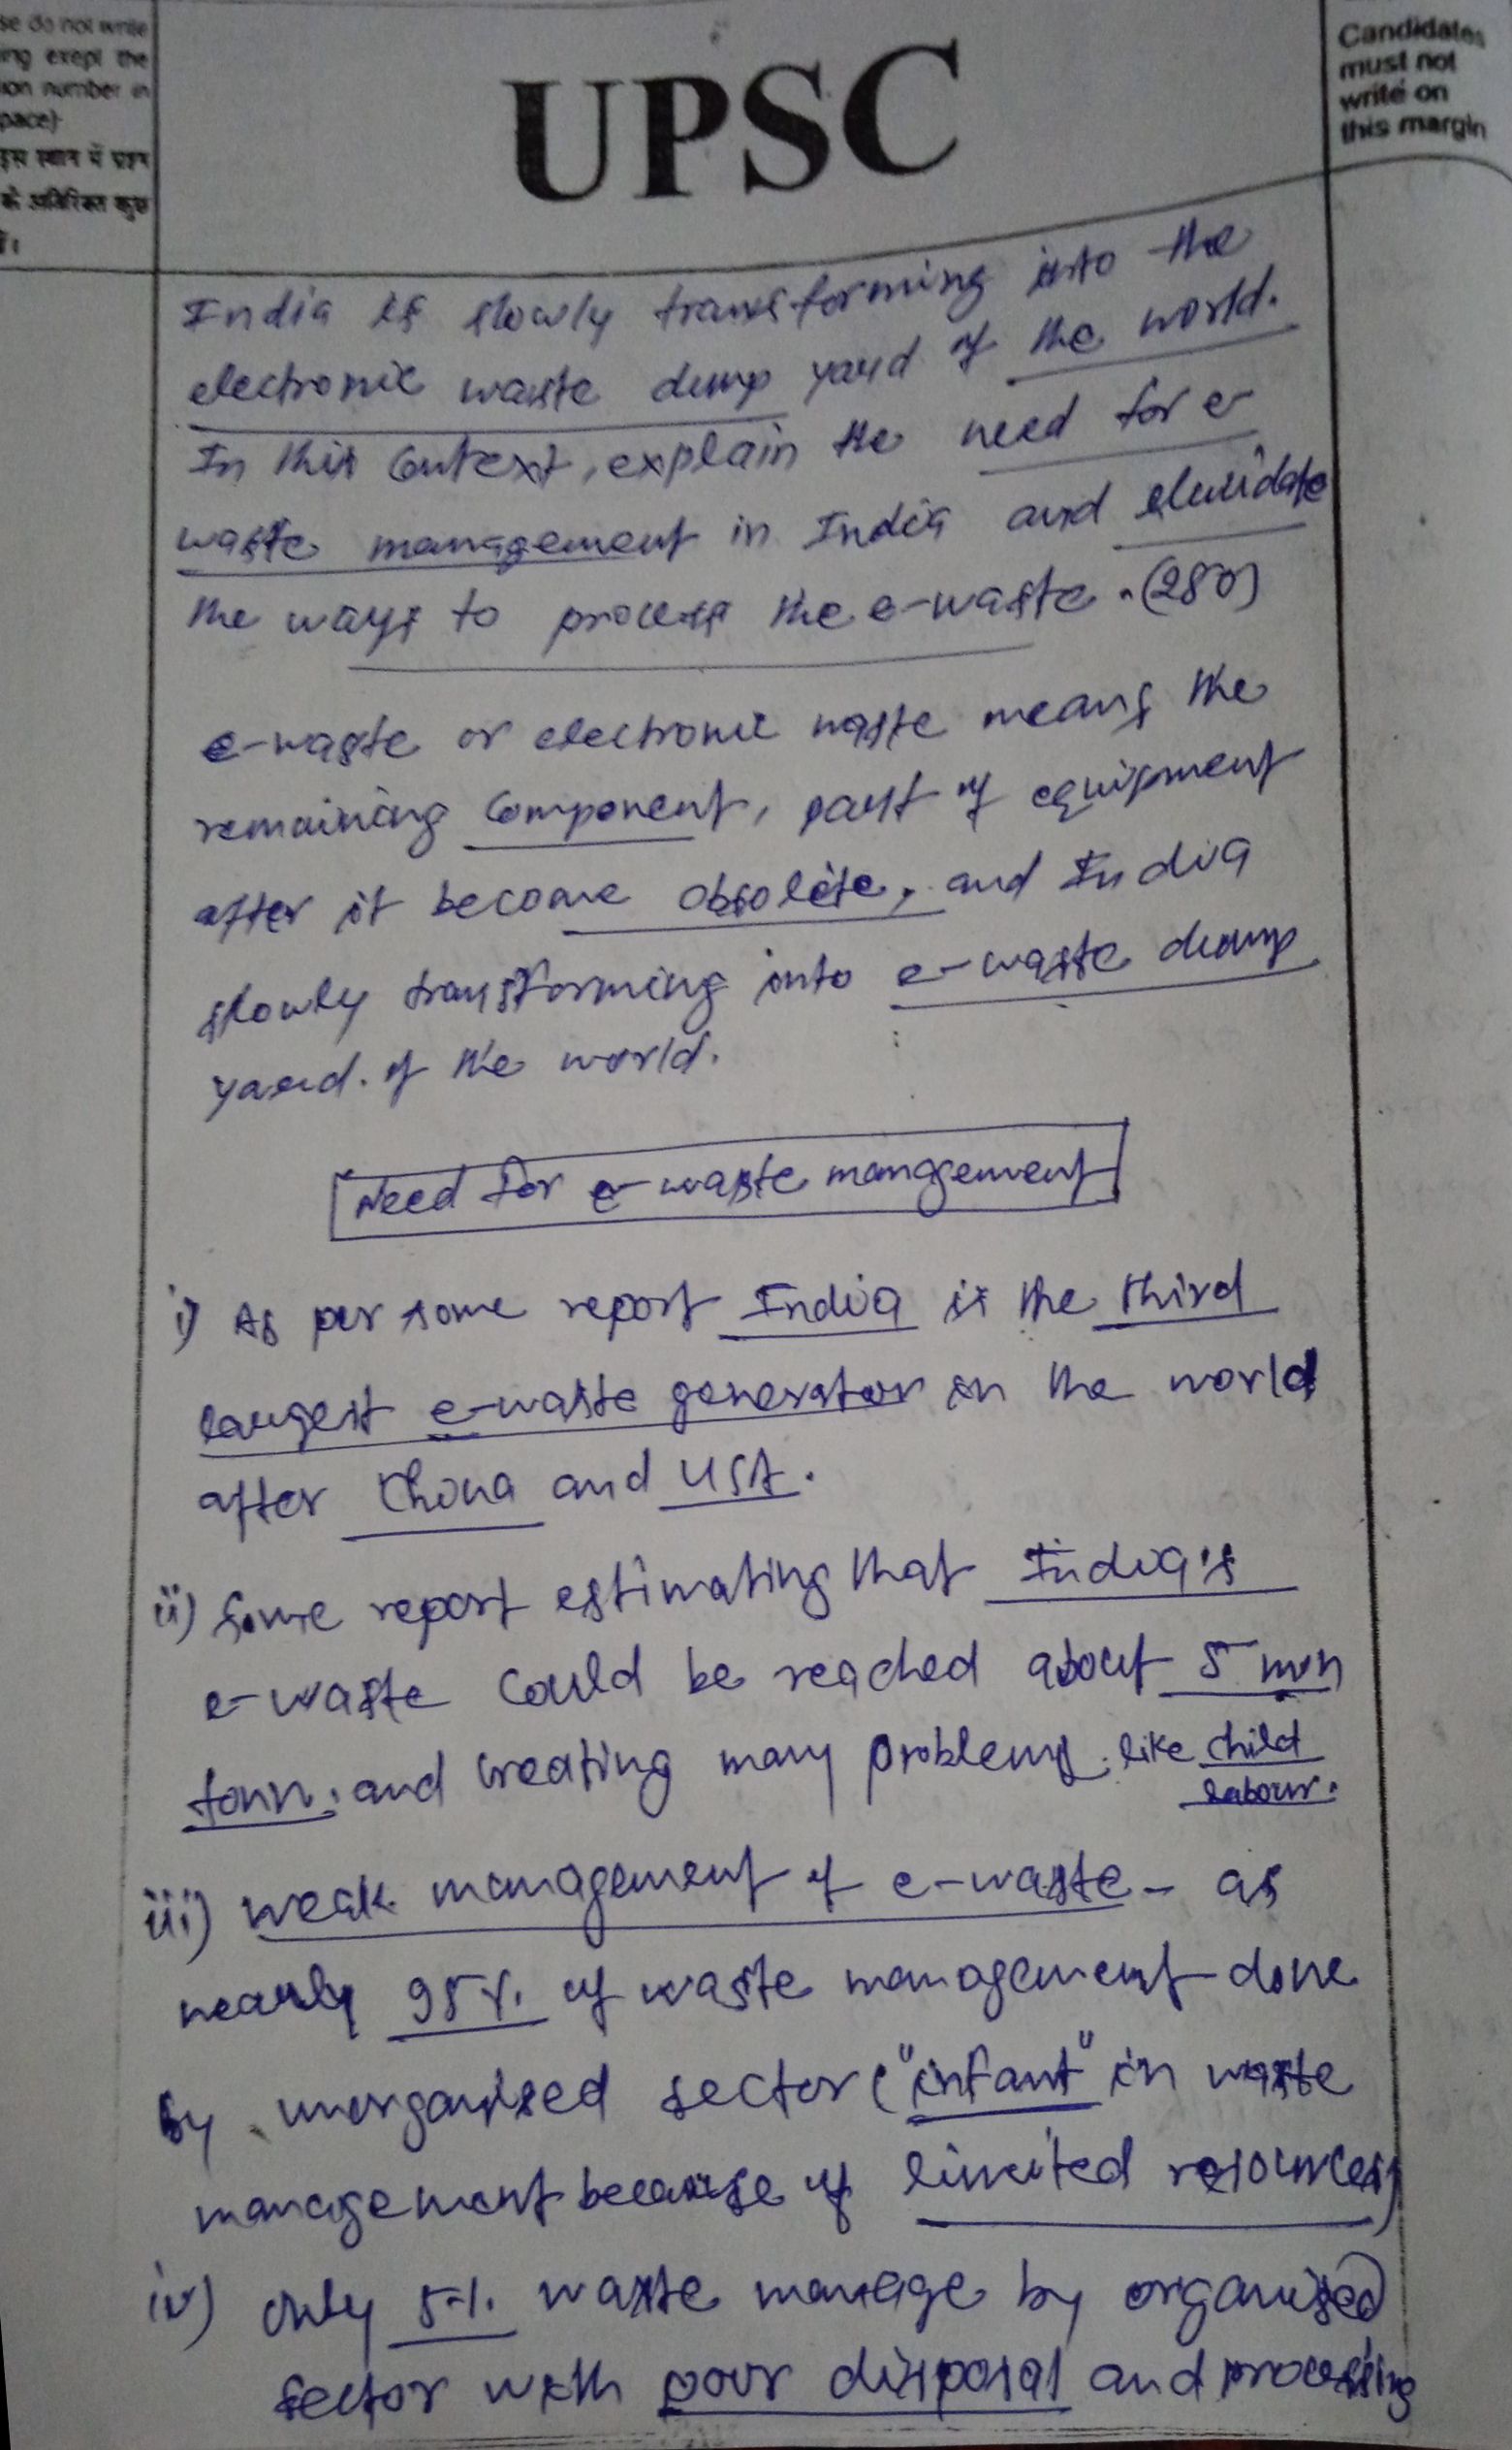 se do not write
ing exept the
ion number in
pace)
इस स्थान में प्रश्न
के अतिरिक्त कुछ
UPSC
Candidates
must not
write on
this margin
India is slowly transforming into the
electronic waste dump yard of the world.
In this context, explain the need for e-
waste management in India and elucidate
the ways to process the e-waste. (250)
e-waste or electronic waste means the
remaining component, part of equipment
after it become obsolete, and India
slowly transforming into e-waste dump
yard. of the world.
Need for e-waste management
i) As per some report India is the third
largest e-waste generator in the world
after China and USA.
ii) Some report estimating that India's
e-waste could be reached about 5 mn
tonn. and creating many problems like child
labour.
iii) weak management of e-waste - as
nearly 95%. of waste management done
by unorganised sector ("infant" in waste
management because of limited resources)
iv) only 5%. waste manage by organised
sector with poor disposal and processing